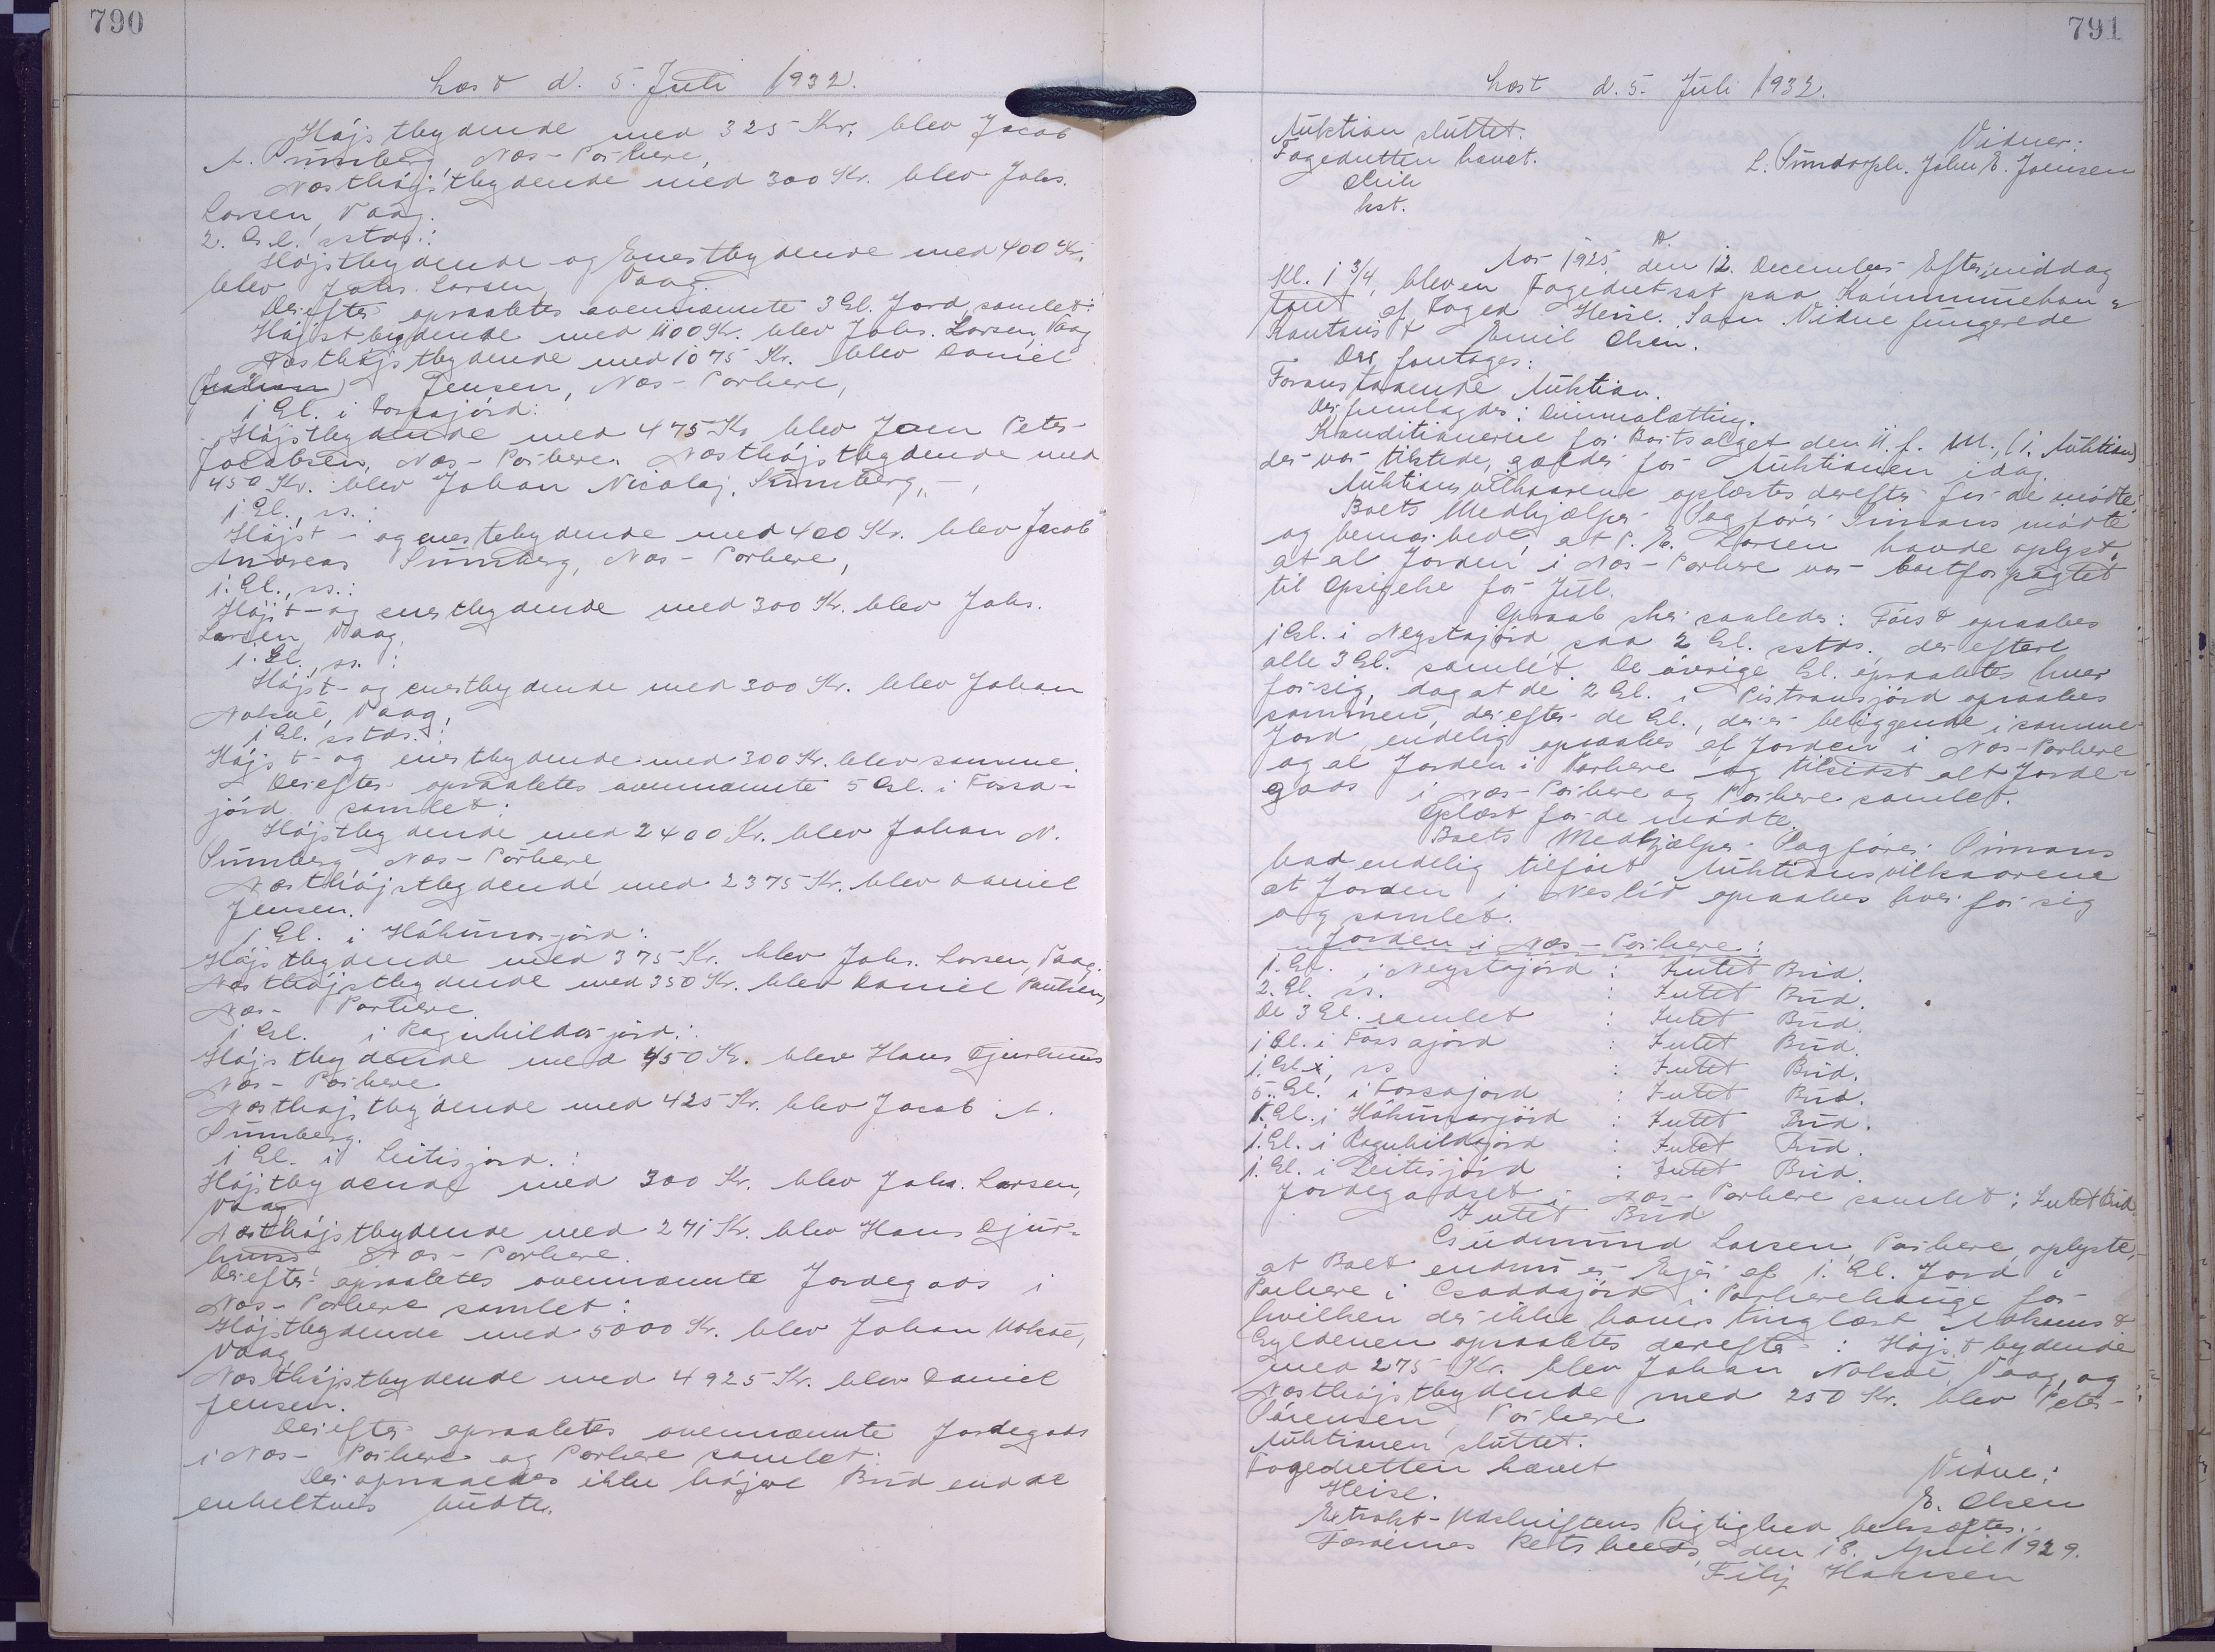 790
Læst d. 5. Juli 1932.
Højstbydende med 325 Kr. blev Jacob
A. Sumberg, Næs-Porkere,
Næsthøjstbydende med 300 Kr. blev Johs.
Larsen, Vaag.
2. Gl. sstds.:
Højstbydende og Enestbydende med 400 Kr.
blev Johs. Larsen, Vaag.
Derefter opraabtes ovennævnte 3 Gl. Jord samlet:
Højstbydende med 1100 Kr. blev Johs. Larsen, Vaag
Næsthøjstbydende med 1075 Kr. blev Daniel
Jensen, Næs-Porkere,
1 Gl. i Fossajørd:
Højstbydende med 475 Kr blev Joen Peter
Jacobsen, Næs-Porkere. Næsthøjstbydende med
450 Kr. blev Johan Nicolaj Sumberg, " - ,
1 Gl., ss.:
Højst- og enestebydende med 400 Kr. blev Jacob
Andreas Sumberg, Næs-Porkere,
1. Gl., ss.:
Højst- og enestbydende med 300 Kr. blev Johs.
Larsen, Vaag,
1. Gl., ss.:
Højst- og enestbydende med 300 Kr. blev Johan
Nolsøe, Vaag,
1 Gl. sstds.:
Højst- og enestbydende med 300 Kr. blev samme.
Derefter opraabtes ovennævnte 5 Gl. i Fossa-
jørd samlet:
Højstbydende med 2400 Kr. blev Johan N.
Sumberg Næs-Porkere
Næsthøjstbydende med 2375 Kr. blev Daniel
Jensen.
1 Gl. i Håkunarjørd:
Højstbydende med 375 Kr. blev Johs. Larsen, Vaag.
Næsthøjstbydende med 350 Kr. blev Daniel Poulsen,
Næs-Porkere.
1 Gl. i Ragnhildarjørd:
Højstbydende med 450 Kr. blev Hans Djurhuus
Næs-Porkere
Næsthøjstbydende med 425 Kr. blev Jacob A.
Sumberg.
1 Gl. i Leitisjørd.:
Højstbydende med 300 Kr. blev Johs. Larsen,
Vaag
Næsthøjstbydende med 271 Kr. blev Hans Djur-
huus Næs-Porkere.
Derefter opraabtes ovennævnte Jordegods i
Næs-Porkere samlet:
Højstbydende med 5000 Kr. blev Johan Nolsøe,
Vaag
Næsthøjstbydende med 4925 Kr. blev Daniel
Jensen.
Derefter opraabtes ovennævnte Jordegods
i Næs-Porkere og Porkere samlet:
Der opnaaedes ikke højere Bud end de
enkeltvis budte.
791
Læst d. 5. Juli 1932.
Auktion sluttet.
Fogedretten hævet.
Vidner:
L. Sundorph. John E. Joensen
kst.
Aar 1925, den 12. December Eftermiddag
Kl. 1 3/4, blev en Fogedret sat paa Kommunekon-
toret af Foged Heise. Som Vidne fungerede
Kontorist Emil Olsen.
Der foretoges:
Foranstaaende Auktion.
Der fremlagdes: Dimmalætting.
Konditionerne for Bortsalget den 11. f. M., (1. Auktion)
der var tilstede, gælder for Auktionen idag.
Auktionsvilkaarene oplæstes derefter for de mødte.
Boets Medhjælper Sagfører Simons mødte
og bemærkede, at P. E. Larsen havde oplyst,
at al Jorden i Næs-Porkere var bortforpagtet
til Opsigelse før Jul.
Opraab sker saaledes: Først opraabes
1 Gl. i Neystajørd, saa 2 Gl. sstds., derefter
alle 3 Gl. samlet. De øvrige Gl. opraabtes hver
for sig, dog at de 2 Gl. i Pistransjørd opraabes
sammen, derefter de Gl., der er beliggende i samme
Jord, endelig opraabes al Jorden i Næs-Porkere
og al Jorden i Porkere og tilsidst alt Jorde-
gods i Næs-Porkere og Porkere samlet.
Oplæst for de mødte.
Boets Medhjælper Sagfører Simons
bad endelig tilført Auktionsvilkaarene
at Jorden i Neslið opraabes hver for sig
og samlet.
Jorden i Næs-Porkere:
1. Gl. i Neystajørd : Intet Bud.
2. Gl. ss. : Intet Bud.
De 3 Gl. samlet : Intet Bud.
1 Gl. i Fossajørd : Intet Bud.
1. Gl., ss : Intet Bud.
5. Gl. i Fossajørd : Intet Bud.
1. Gl. i Håkunarjørd : Intet Bud.
1. Gl. i Ragnhildajørd : Intet Bud.
1. Gl. i Leitisjørd : Intet Bud.
Jordegodset i Næs-Porkere samlet: Intet Bud.
Intet Bud
Gudmund Larsen, Porkere, oplyste,
at Boet endnu er Ejer af 1. Gl. Jord i
Porkere i Gaddajørd i Porkerehauge for
hvilken der ikke haves tinglæst Adkomst
Gyldenen opraabtes derefter: Højstbydende
med 275 Kr. blev Johan Nolsøe, Vaag, og
Næsthøjstbydende med 250 Kr. blev Peter
Sørensen, Porkere
Auktionen sluttet.
Fogedretten hævet
Heise.
Vidne:
E. Olsen
Extrakt-Udskriftens Rigtighed bekræftes.
Færøernes Retskreds, den 18. April 1929.
Filip Hansen